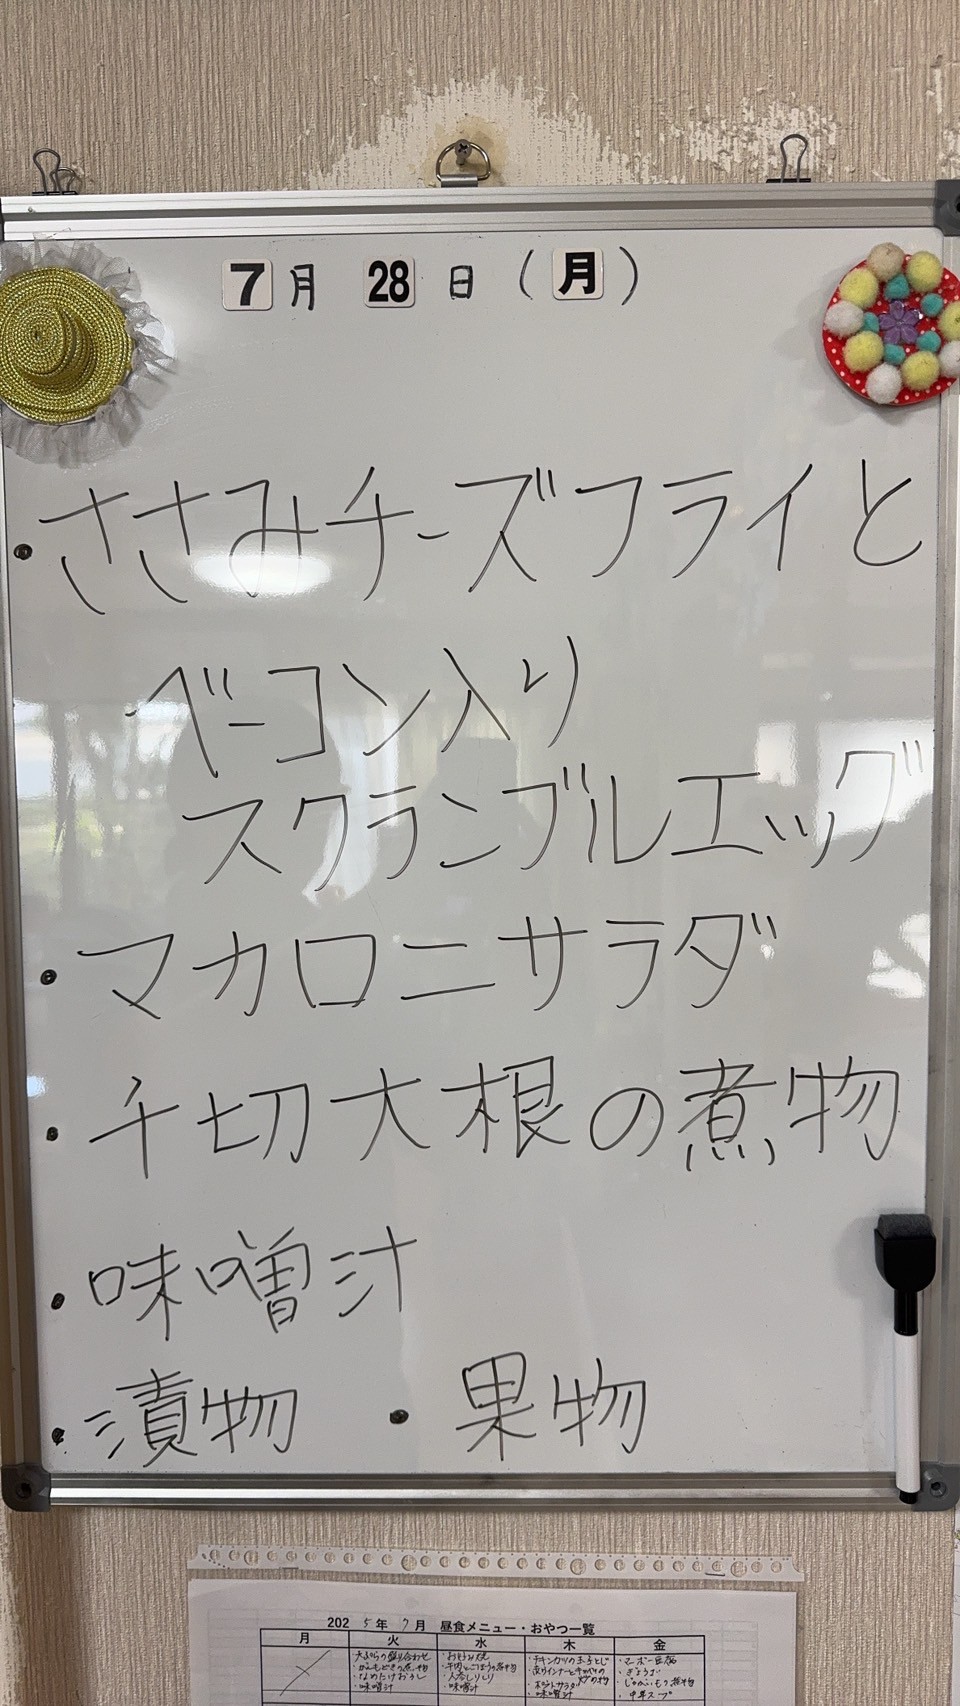 7月 28日(月)
・ささみチーズフライと
ベーコン入り
スクランブルエッグ
・マカロニサラダ
・千切大根の煮物
・味噌汁
・漬物 ・果物
2025年7月 昼食メニュー・おやつ一覧
月 火 水 木 金
・味噌汁 ・味噌汁 ・味噌汁